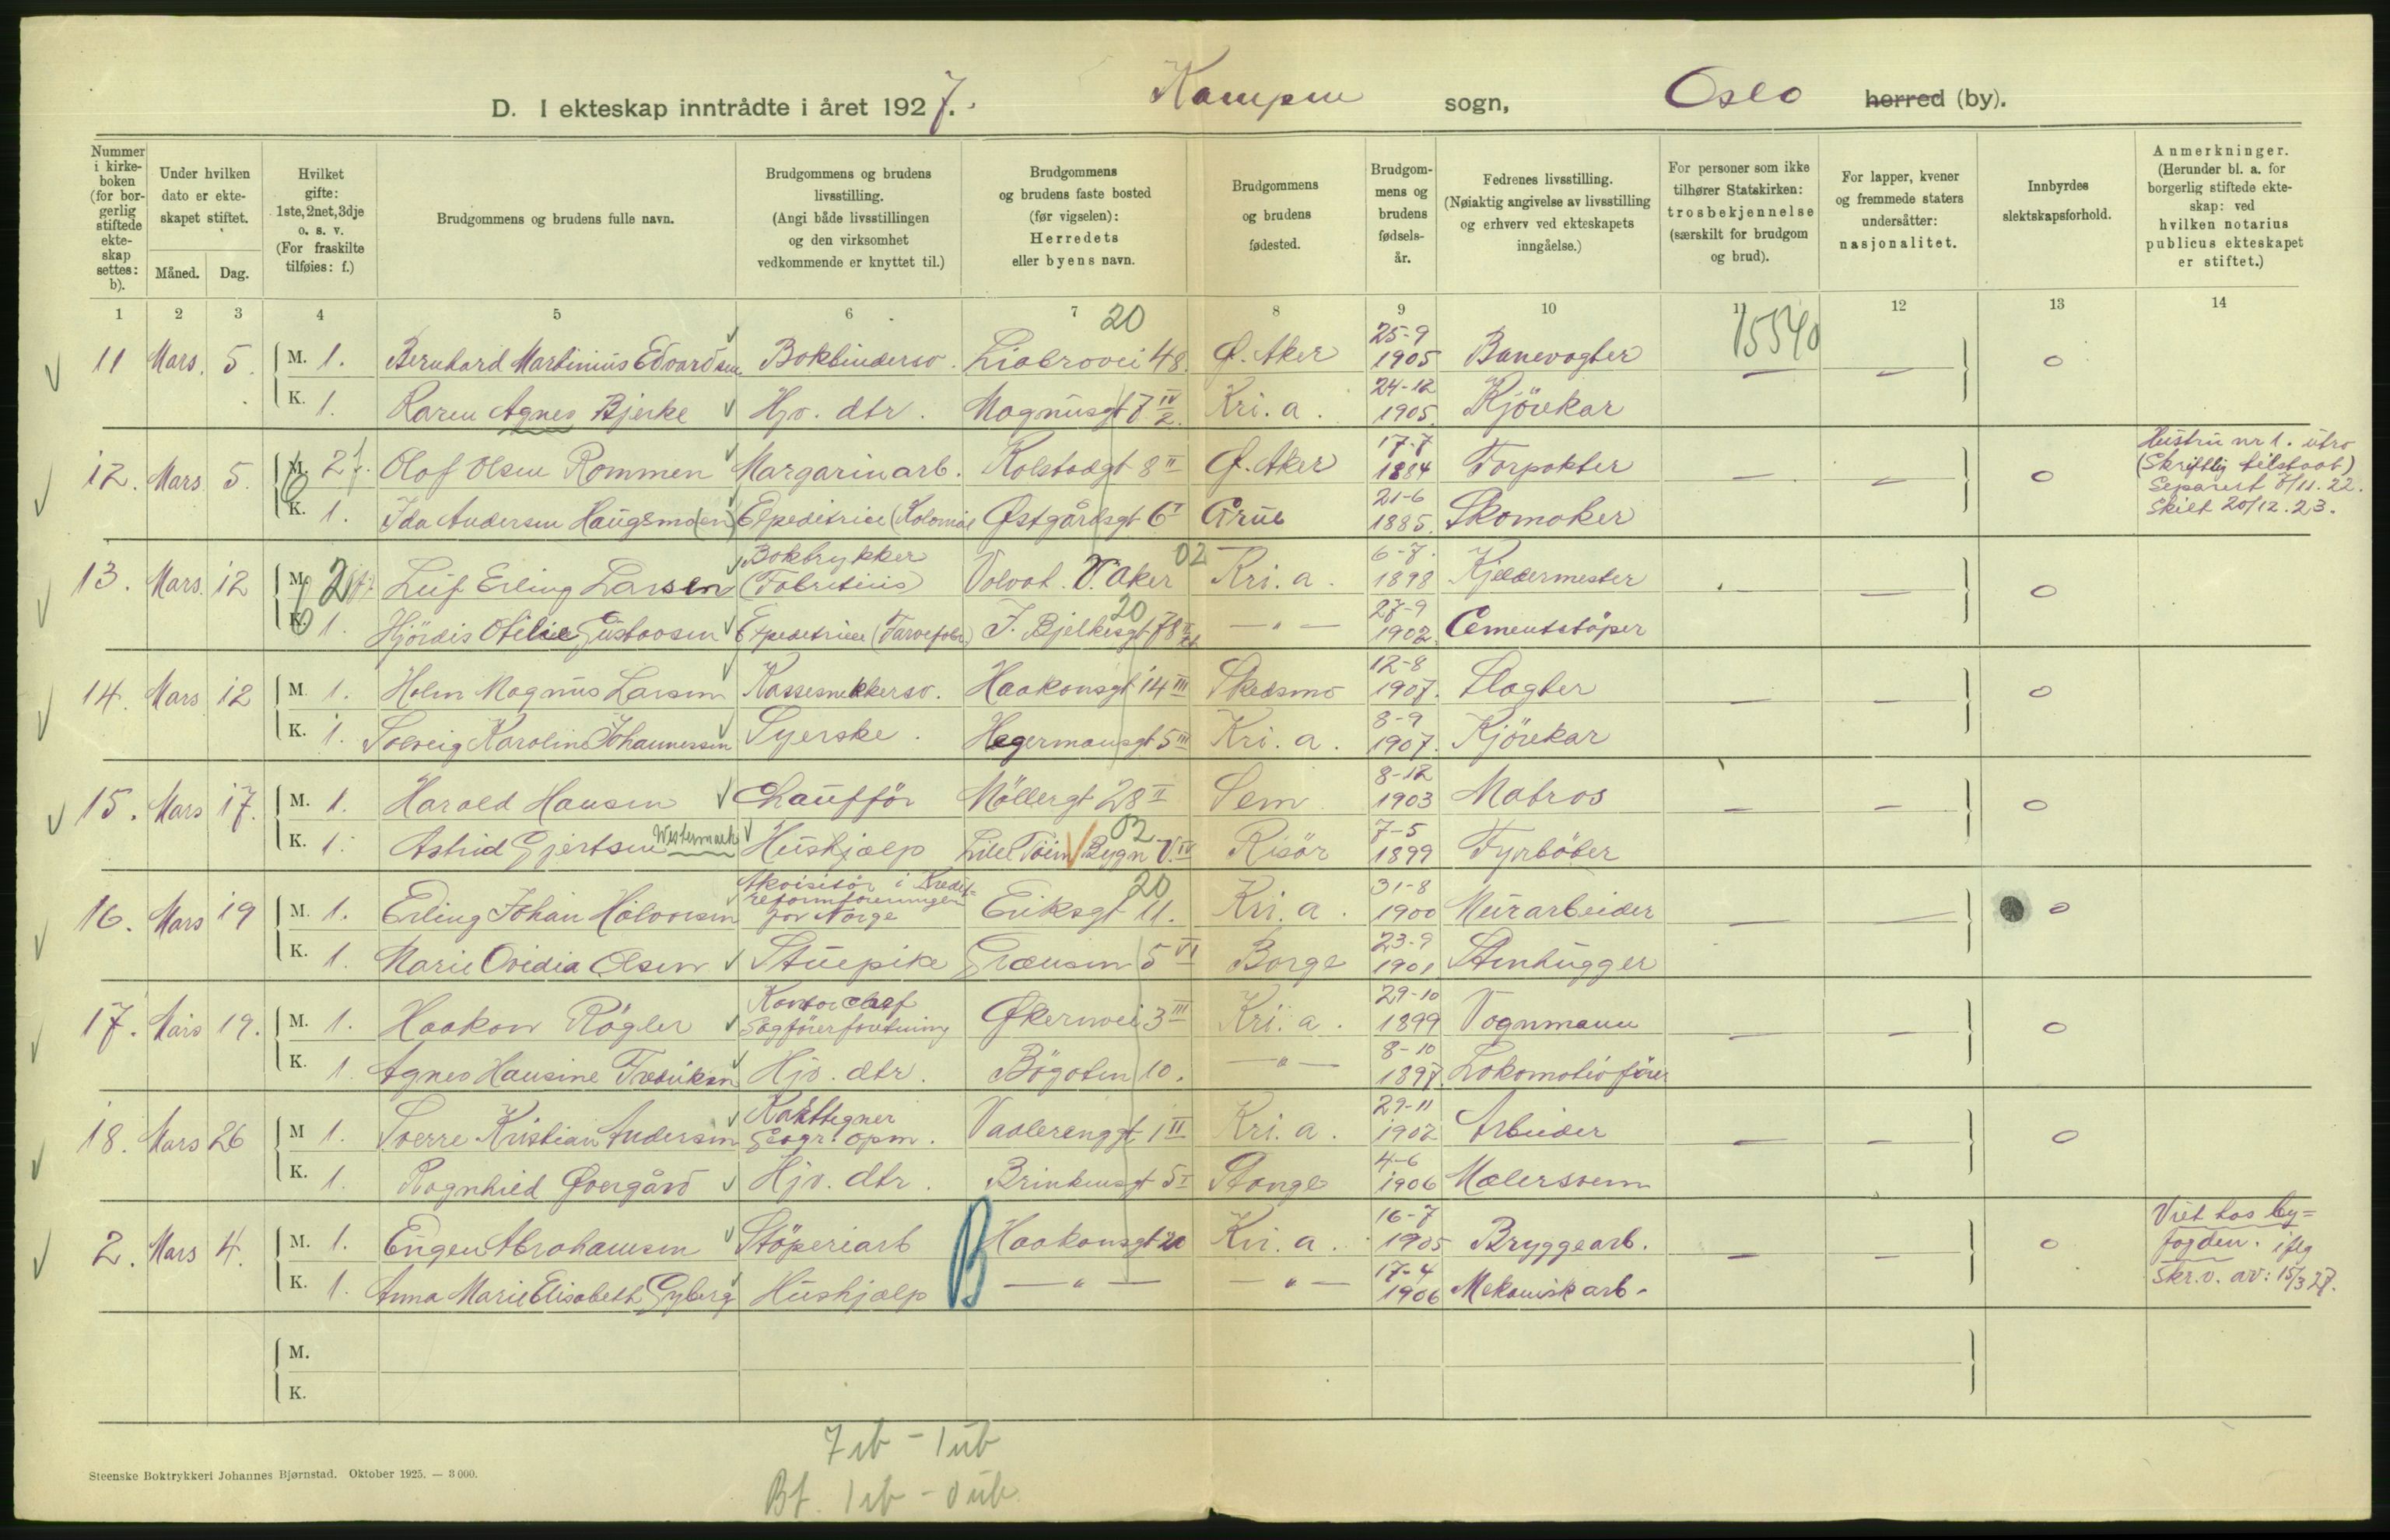 D. I ekteskap inntrådte i året 1927. Kampen sogn, Oslo herred (by).
Nummer i kirkeboken (for borgerlig stiftede ekteskap settes: b).
Under hvilken dato er ekteskapet stiftet.
Måned. Dag.
Hvilket gifte: 1ste, 2net, 3dje o. s. v. (For fraskilte tilføies: f.)
Brudgommens og brudens fulle navn.
Brudgommens og brudens livsstilling. (Angi både livsstillingen og den virksomhet vedkommende er knyttet til.)
Brudgommens og brudens faste bosted (før vigselen): Herredets eller byens navn.
Brudgommens og brudens fødested.
Brudgommens og brudens fødselsår.
Fedrenes livsstilling. (Nøiaktig angivelse av livsstilling og erhverv ved ekteskapets inngåelse.)
For personer som ikke tilhører Statskirken: trosbekjennelse (særskilt for brudgom og brud).
For lapper, kvener og fremmede staters undersåtter: nasjonalitet.
Innbyrdes slektskapsforhold.
Anmerkninger. (Herunder bl. a. for borgerlig stiftede ekteskap: ved hvilken notarius publicus ekteskapet er stiftet.)
1 2 3 4 5 6 7 8 9 10 11 12 13 14
20 15540
11 Mars. 5. M. 1. Bernhard Martinius Edvardsen Bokbindersv. Liabrovei 48 Ø. Aker 25-9 1905 Banevogter — — 0
K. 1. Karen Agnes Bjerke Hjv. dtr. Magnusgt 7 IV 2. Kri. a. 24-12 1905. Kjörekar
12. Mars 5. M. 2 f. Olof Olsen Rommen Margarinarb. Kolstadgt 8 II Ø. Aker 17-7 1884 Forpakter — — 0 Hustru nr 1. utro (Skriftlig tilstaat) Separert 7/11.22. Skilt 20/12.23.
K. 1. Ida Andersen Haugsmoen Expeditrice (Kolonial Østgårdsgt 6 I Grue 21-6 1885. Skomaker
13. Mars. 12 M. 2 f. Leif Erling Larsen Boktrykker (Fabritius) Volvat. V. Aker 02 Kri. a. 6-7. 1898 Kjeldermester — 0
K. 1. Hjördis Otilie Gustavsen Expeditrice (Farvefabr.) J. Bjelkesgt 78 20 — " — 27-9 1902. Cementstöper
14. Mars 12 M. 1. Holm Magnus Larsen Kassesnekkersv. Haakonsgt 14 III Skedsmo 12-8 1907. Slagter — — 0
K. 1. Solveig Karoline Johannessen Syerske. Hegermansgt 5 III Kri. a. 8-9 1907. Kjörekar
15. Mars 17. M. 1. Harald Hansen Chaufför Möllergt 28 II Sem 8-12 1903 Matros — — 0
K. 1. Astrid Gjertsen Westermark Hushjælp Lille Töien Bygn V. IV 02 Risör 7-5 1899 Fyrböter
16. Mars 19 M. 1. Erling Johan Halvorsen Akvisitör i Kreditreformforeningen for Norge Eriksgt 11. 20 Kri. a. 31-8 1900 Murarbeider — — 0
K. 1. Marie Ovidia Olsen Stuepike Grænsen 5 VI Borge 23-9 1901 Stenhugger
17. Mars 19. M. 1. Haakon Rögler Kontorchef Sagförerforetning Økernvei 3 III Kri. a. 29-10 1899 Vognmann — — 0
K. 1. Agnes Hansine Fredriksen Hjv. dtr. Bögaten 10. — " — 8-10 1897 Lokomotivförer
18. Mars 26 M 1. Sverre Kristian Andersen Karttegner Geogr. opm. Vaalerenggt 1 II Kri. a. 29-11 1902 Arbeider — — 0
K. 1. Ragnhild Øvergård Hjv. dtr. Brinkensgt 5 I Stange 4-6 1906 Malersvenn
2. Mars 4. M. 1. Eugen Abrahamsen Stöperiarb B Haakonsgt 20 Kri. a. 16-7 1905 Bryggearb. — — 0 Viet hos byfogden. iflg skr. v. av: 15/3 27.
K. 1. Anna Marie Elisabeth Gyberg Hushjælp — " — — " — 17-4 1906 Mekanisk arb.
M.
K.
7 ib - 1 ub
Bf. 1 ib - 0 ub
Steenske Boktrykkeri Johannes Bjørnstad. Oktober 1925. — 3000.